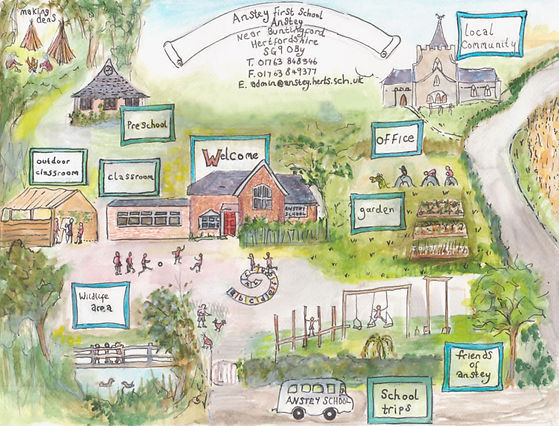 making
dens
Anstey First School
Anstey
Near Buntingford
Hertfordshire
SG9 0By
T. 01763 848346
F. 01763 849377
E. admin@anstey.herts.sch.uk
Local
Community
Preschool
office
outdoor
classroom
classroom
Welcome
garden
ANSTEY
SCHOOL
Wildlife
area
a b c d e f
friends
of
anstey
ANSTEY SCHOOL
School
trips